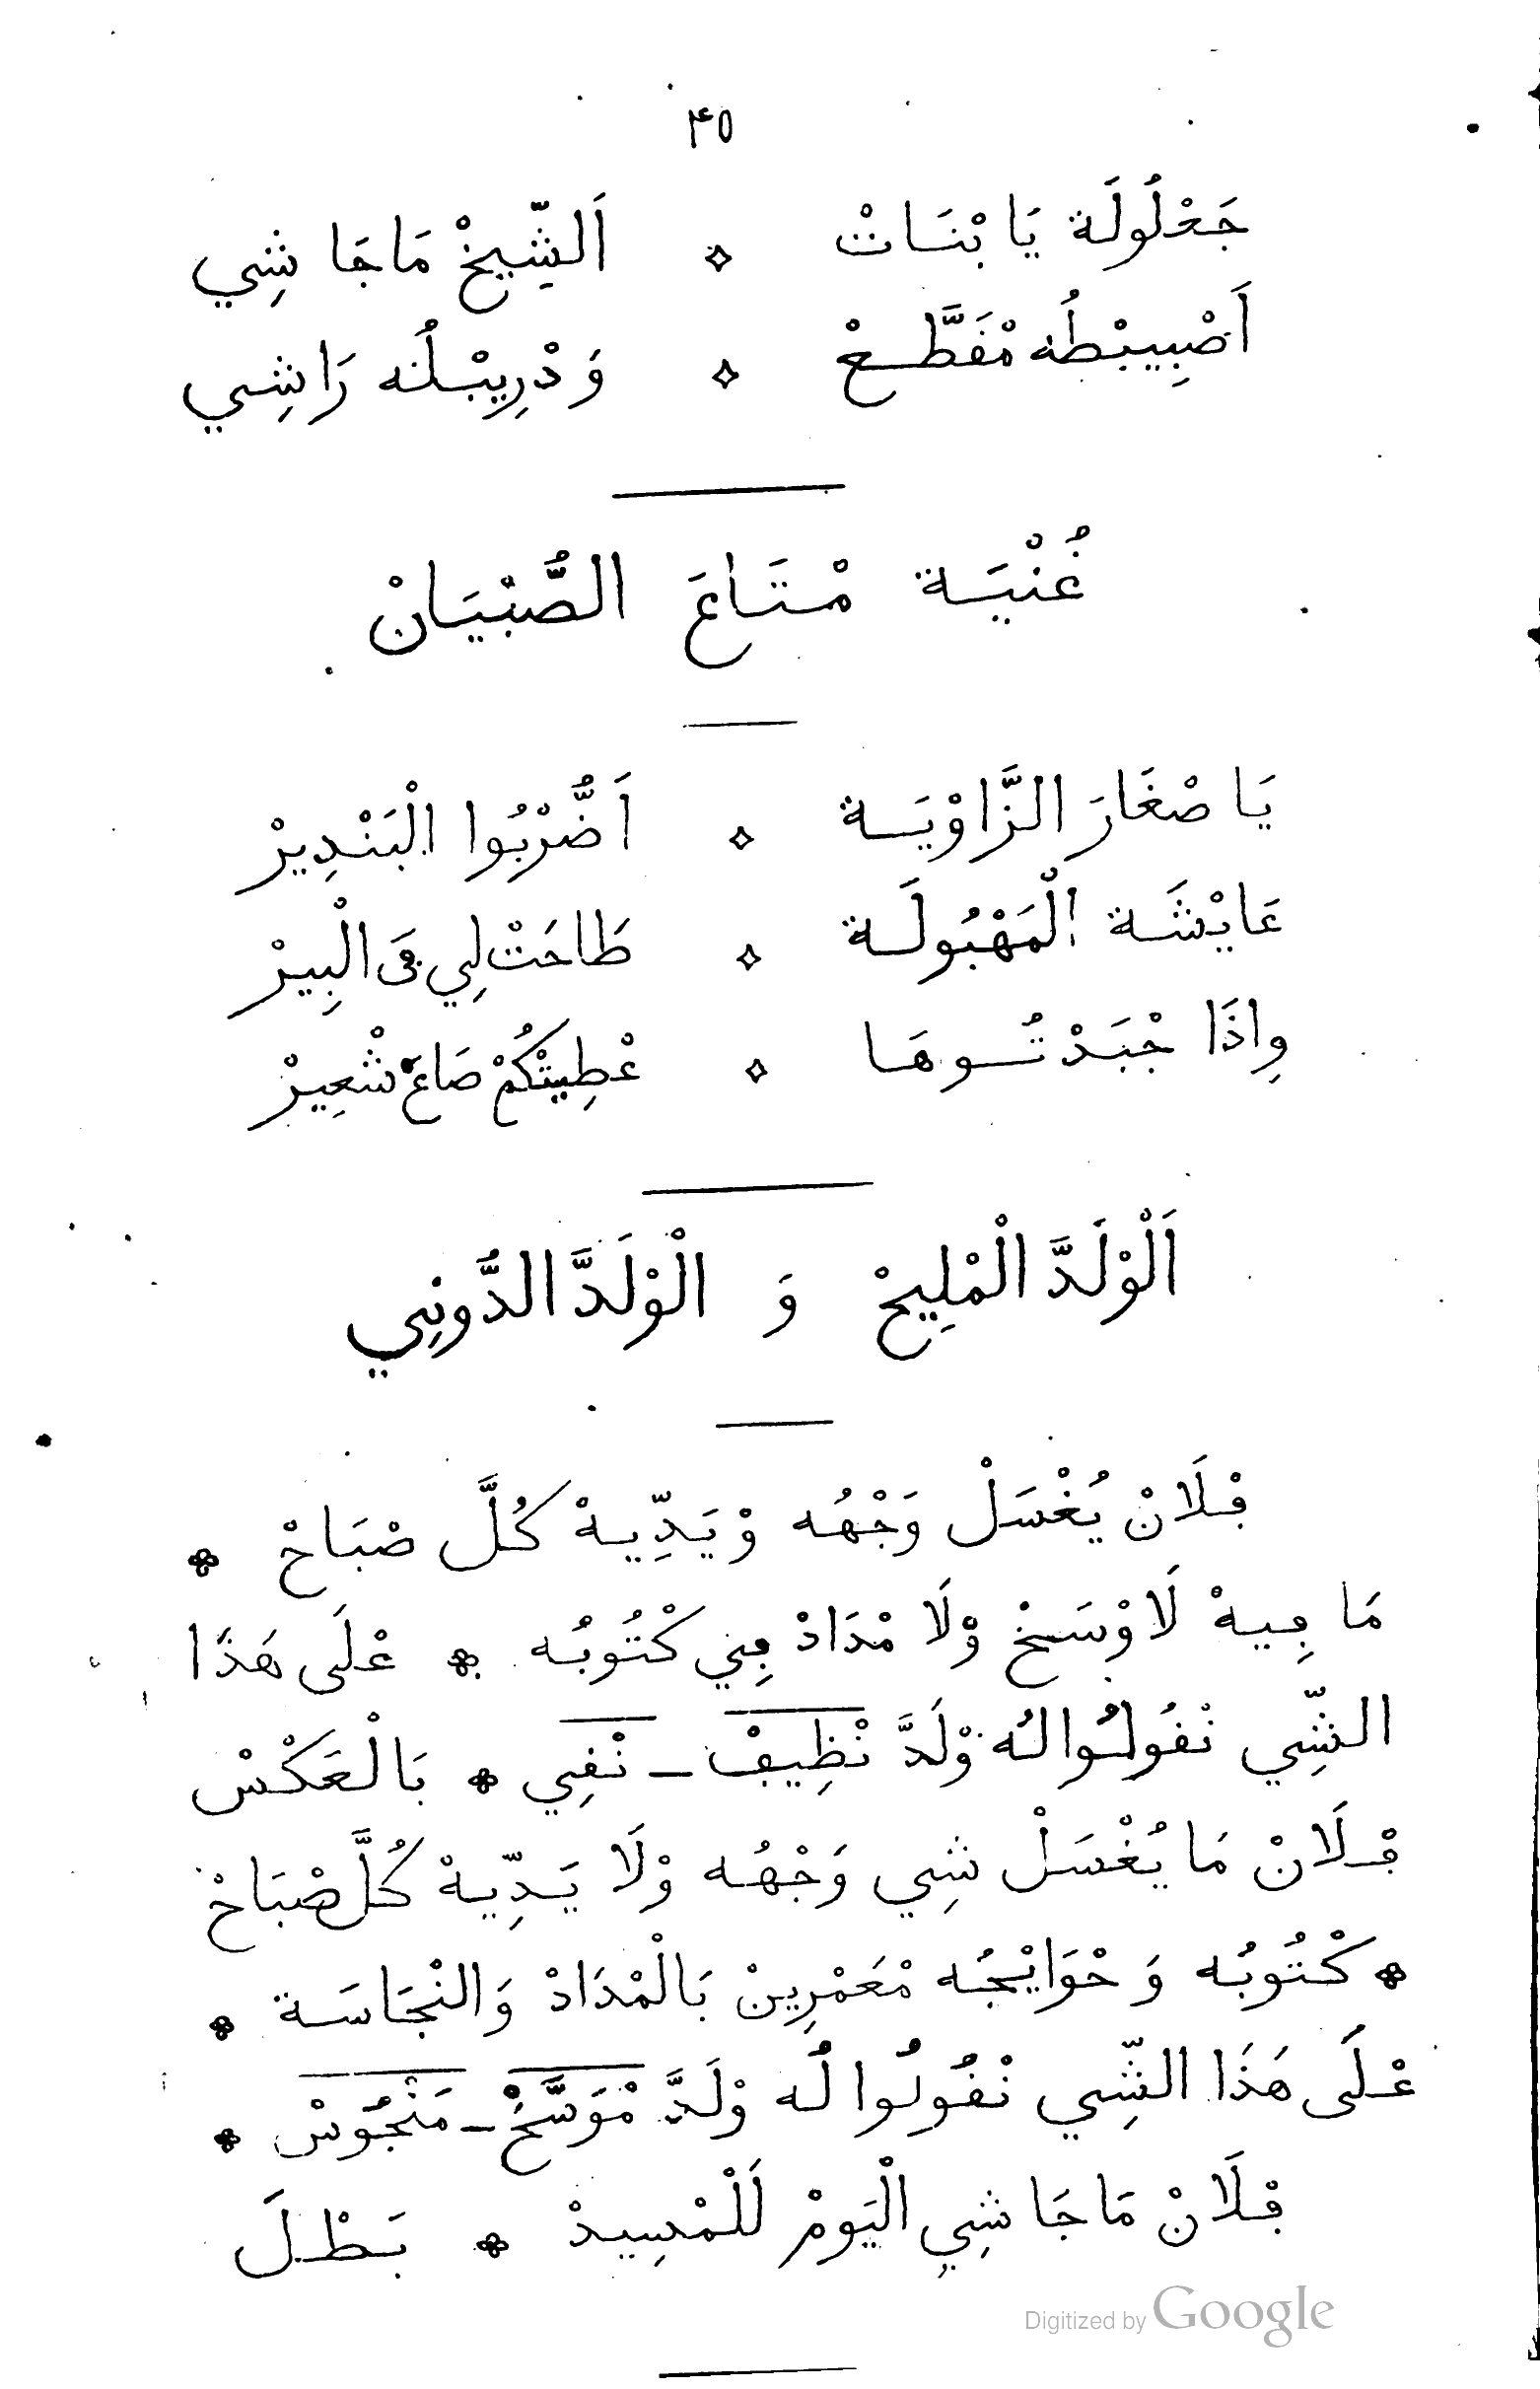 ٣٥
جَعْلُولَة يَا بْنَاتْ ⟡ اَلشِّيخْ مَا جَا شِي
اَصْبِيبْطُه مْفَطَّحْ ⟡ وَ دْرِيبْلُه رَاشِي
غُنْيَة مْتَاعَ الصُّبْيَانْ
يَا صْغَارَ الزَّاوْيَة ⟡ اَضُّرْبُوا الْبَنْدِيرْ
عَايْشَة الْمَهْبُولَة ⟡ طَاحَتْ لِي ڢَى الْبِيرْ
وِاذَا جْبَدْتُوهَا ⟡ عْطِيتْكُمْ صَاعَ شْعِيرْ
اَلْوْلَدَّ الْمْلِيحْ وَ الْوْلَدَّ الدُّونِي
ڢْلَانْ يُغْسَلْ وَجْهُه وْ يَدِّيهْ كُلَّ صْبَاحْ ✤
مَا ڢِيهْ لَا وْسَخْ وْلَا مْدَادْ ڢِي كْتُوبُه ✤ عْلَى هَذَا
الشِّي نْڧُولُوا لُه وْلَدَّ نْظِيڢْ ـ نْڧِي ✤ بَالْعَكْسْ
ڢْلَانْ مَا يُغْسَلْ شِي وَجْهُه وْلَا يَدِّيهْ كُلَّ صْبَاحْ
✤ كْتُوبُه وَ حْوَايْجُه مْعَمْرِينْ بَالْمْدَادْ وَالنْجَاسَة ✤
عْلَى هَذَا الشِّي نْڧُولُوا لُه وْلَدَّ مْوَسَّخْ ـ مَنْجُوسْ ✤
ڢْلَانْ مَا جَا شِي الْيَومْ لَلْمْسِيدْ ✤ بَطْلَ
Digitized by Google